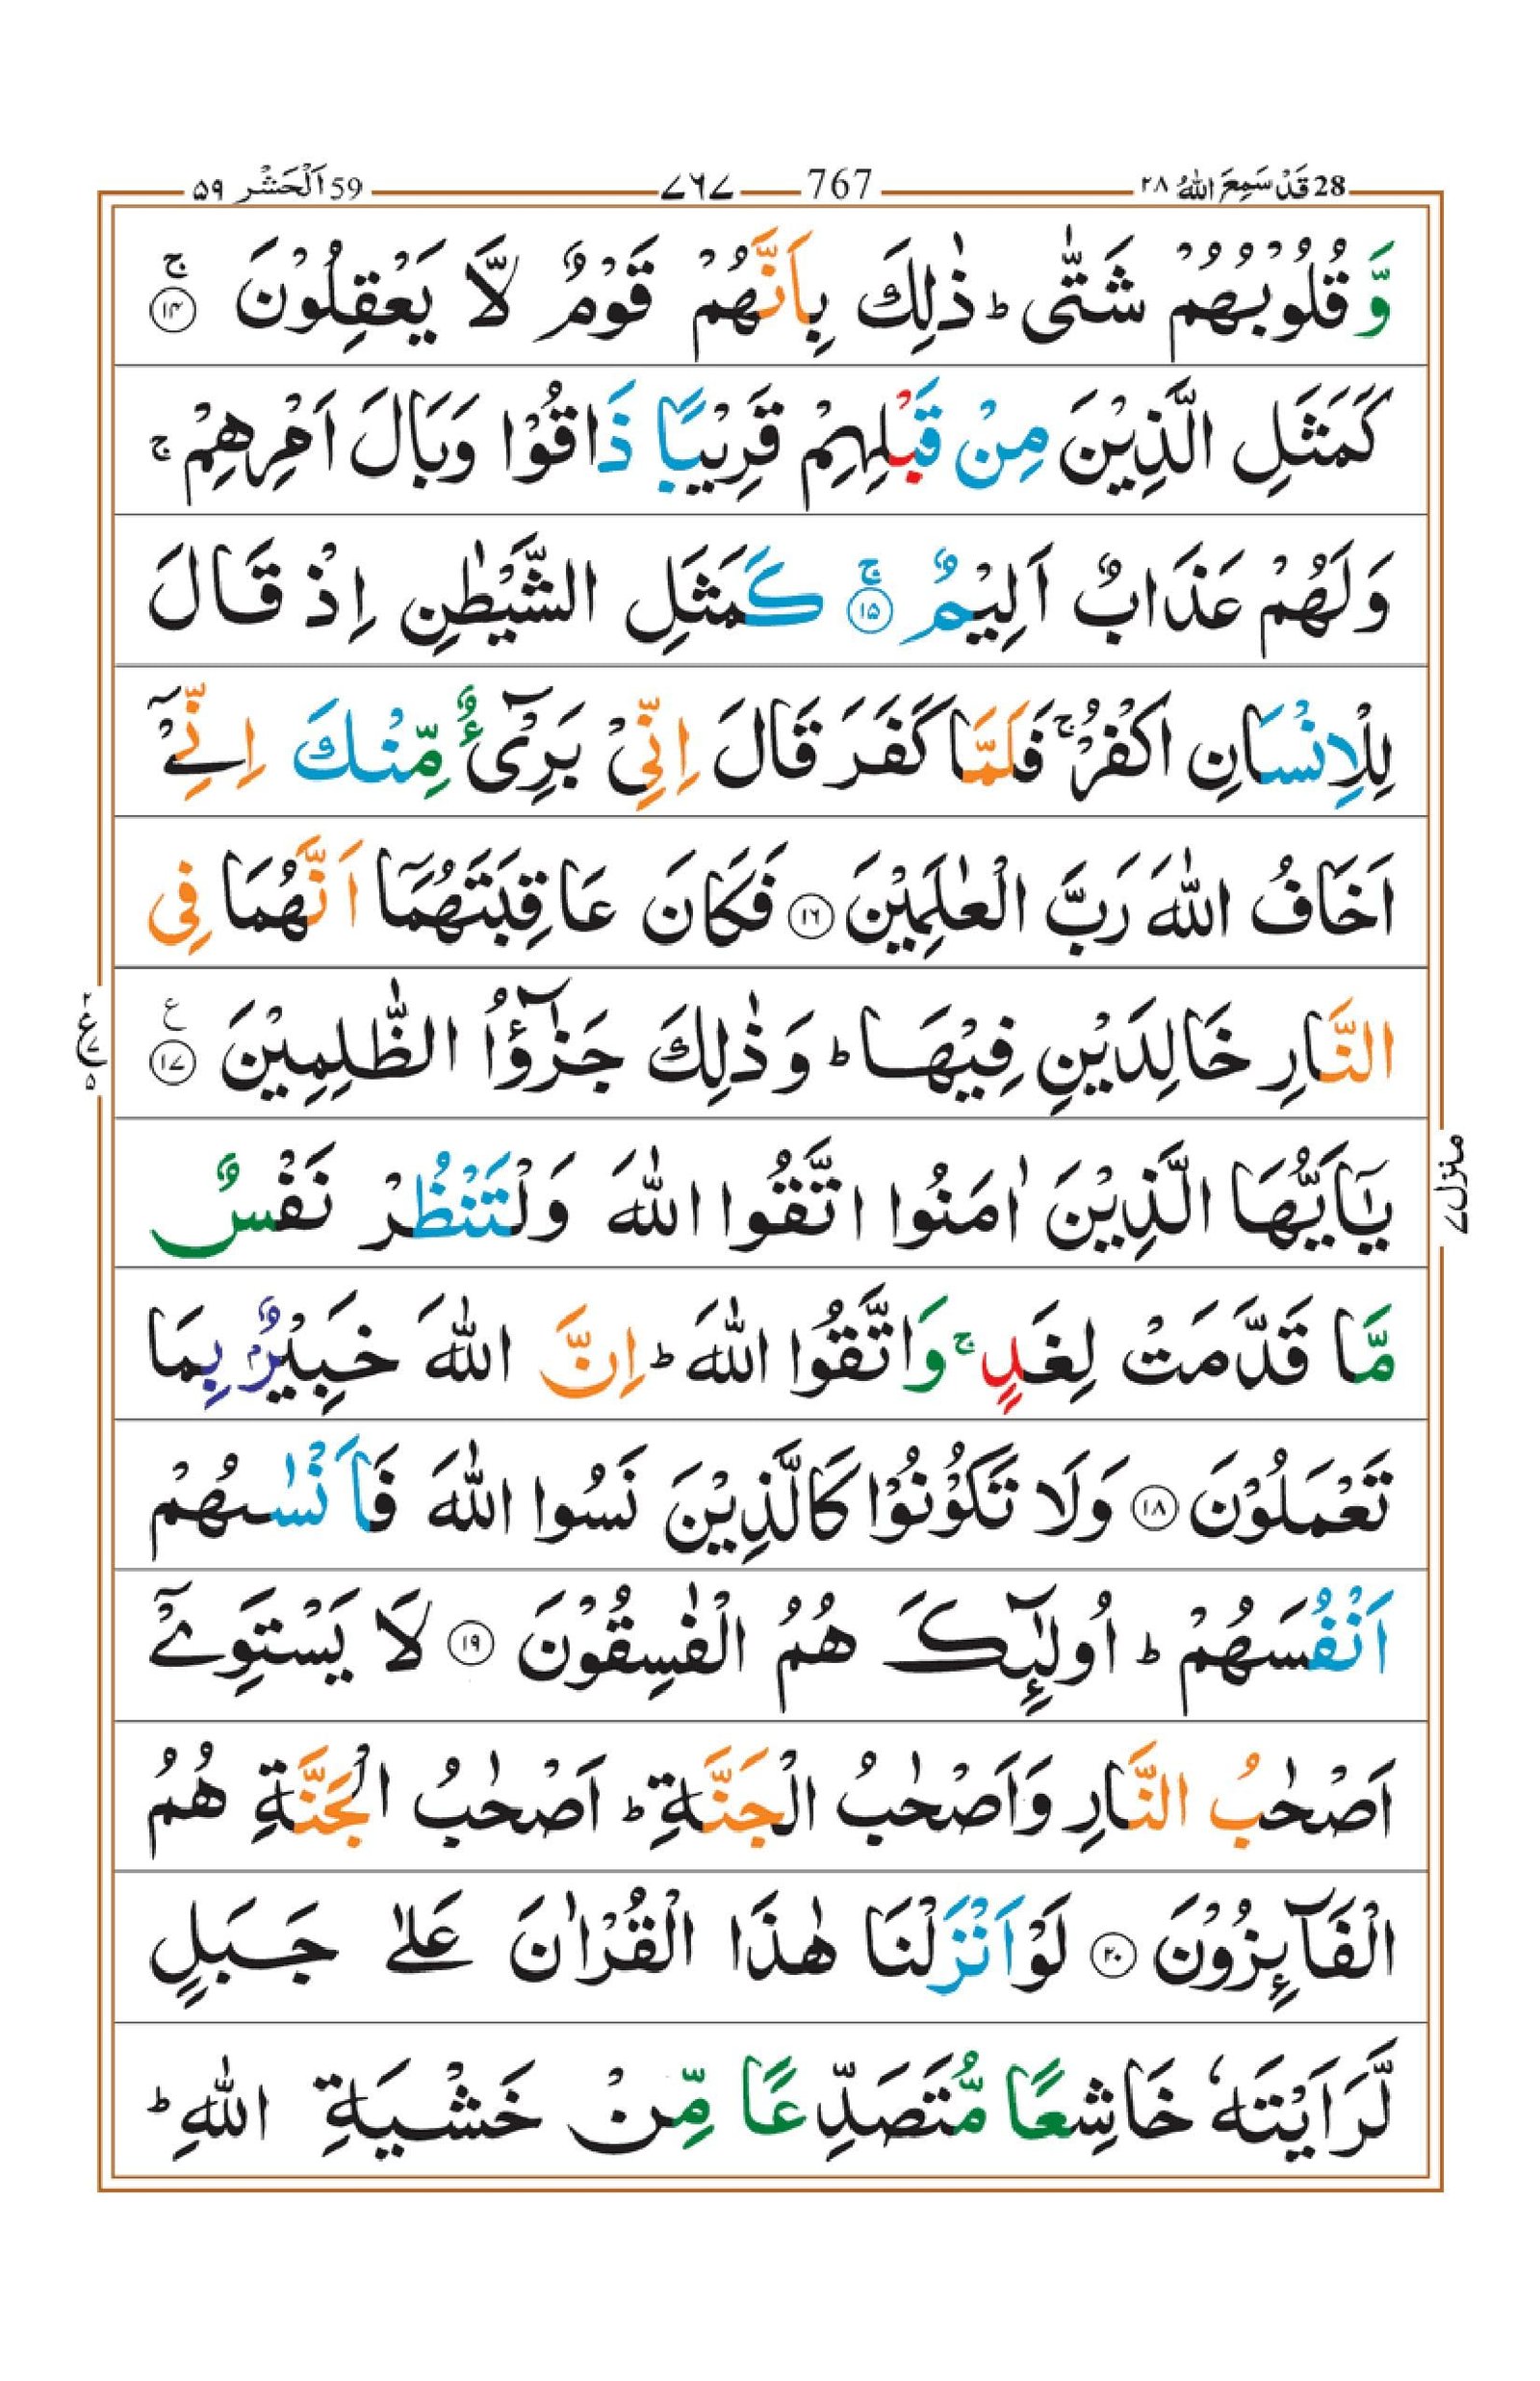 28 قَدْ سَمِعَ اللّٰهُ ٢٨
767 ٧٦٧
59 اَلْحَشْر ٥٩
وَّ قُلُوْبُهُمْ شَتّٰى ؕ ذٰلِكَ بِاَنَّهُمْ قَوْمٌ لَّا يَعْقِلُوْنَ ۚ ﴿۱۴﴾
كَمَثَلِ الَّذِيْنَ مِنْ قَبْلِهِمْ قَرِيْبًا ذَاقُوْا وَبَالَ اَمْرِهِمْ ۚ
وَلَهُمْ عَذَابٌ اَلِيْمٌ ۚ ﴿۱۵﴾ كَمَثَلِ الشَّيْطٰنِ اِذْ قَالَ
لِلْاِنْسَانِ اكْفُرْ ۚ فَلَمَّا كَفَرَ قَالَ اِنِّىْ بَرِىْٓءٌ مِّنْكَ اِنِّىْۤ
اَخَافُ اللّٰهَ رَبَّ الْعٰلَمِيْنَ ﴿۱۶﴾ فَكَانَ عَاقِبَتَهُمَاۤ اَنَّهُمَا فِى
النَّارِ خَالِدَيْنِ فِيْهَا ؕ وَذٰلِكَ جَزٰٓؤُا الظّٰلِمِيْنَ ﴿۱۷﴾ ع
يٰۤاَيُّهَا الَّذِيْنَ اٰمَنُوا اتَّقُوا اللّٰهَ وَلْتَنْظُرْ نَفْسٌ
مَّا قَدَّمَتْ لِغَدٍ ۚ وَاتَّقُوا اللّٰهَ ؕ اِنَّ اللّٰهَ خَبِيْرٌۢ بِمَا
تَعْمَلُوْنَ ﴿۱۸﴾ وَلَا تَكُوْنُوْا كَالَّذِيْنَ نَسُوا اللّٰهَ فَاَنْسٰىهُمْ
اَنْفُسَهُمْ ؕ اُولٰٓئِكَ هُمُ الْفٰسِقُوْنَ ﴿۱۹﴾ لَا يَسْتَوِىْۤ
اَصْحٰبُ النَّارِ وَاَصْحٰبُ الْجَنَّةِ ؕ اَصْحٰبُ الْجَنَّةِ هُمُ
الْفَآئِزُوْنَ ﴿۲۰﴾ لَوْ اَنْزَلْنَا هٰذَا الْقُرْاٰنَ عَلٰى جَبَلٍ
لَّرَاَيْتَهٗ خَاشِعًا مُّتَصَدِّعًا مِّنْ خَشْيَةِ اللّٰهِ ؕ
۲ ع ۷ ۵
منزل ۷